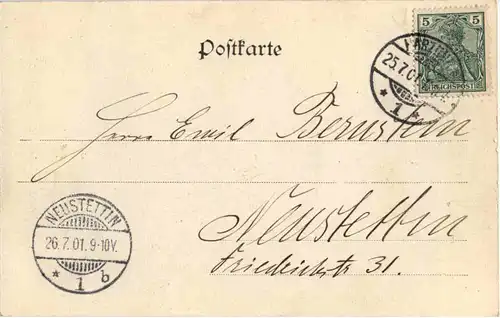 5 5
REICHSPOST
Postkarte
25.7.01
* 1 *
Herrn Emil Bernstein
Neustettin
Friedrichstr 31.
NEUSTETTIN
26.7.01. 9-10V.
* 1 b